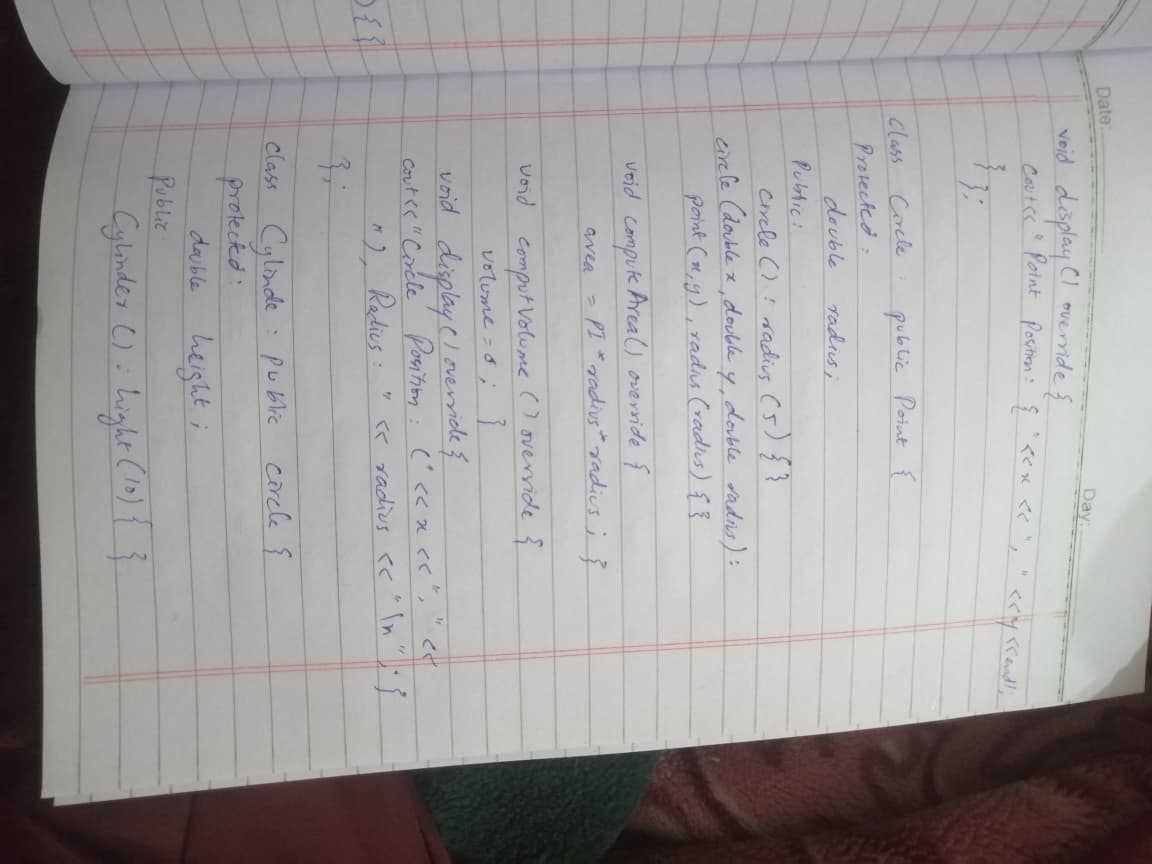 ) {{
Date:
Day:
void display() override {
cout<< "Point Position: { "<<x << ", " <<y <<endl;
} };
class Circle : public Point {
Protected:
double radius;
Public:
Circle() : radius(5) {}
circle(double x, double y, double radius):
point(x,y), radius(radius) {}
void computeArea() override {
area = PI * radius * radius ; }
void computVolume() override {
volume = 0 ; }
void display() override {
cout<< "Circle Position: (" << x << ", " <<
"), Radius: " << radius << "\n" ; }
} ;
class Cylinde : public circle {
protected:
double height ;
Public
Cylinder() : hight(10) { }